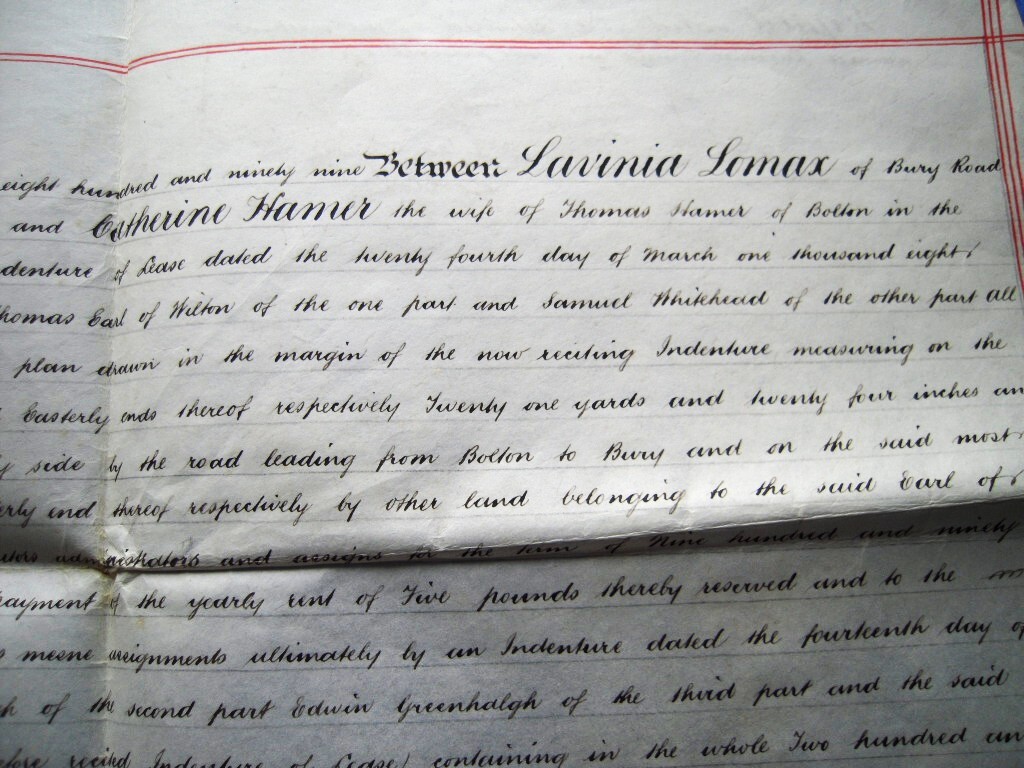 eight hundred and ninety nine Between Lavinia Lomax of Bury Road
and Catherine Hamer the wife of Thomas Hamer of Bolton in the
denture of Lease dated the twenty fourth day of March one thousand eight
homas Earl of Wilton of the one part and Samuel Whitehead of the other part all
plan drawn in the margin of the now reciting Indenture measuring on the
Easterly ends thereof respectively Twenty one yards and twenty four inches an
y side by the road leading from Bolton to Bury and on the said most
erly end thereof respectively by other land belonging to the said Earl of
utors administrators and assigns for the term of Nine hundred and ninety
payment of the yearly rent of Five pounds thereby reserved and to the
s mesne assignments ultimately by an Indenture dated the fourteenth day of
h of the second part Edwin Greenhalgh of the third part and the said
efore recited Indenture of Lease containing in the whole Two hundred an